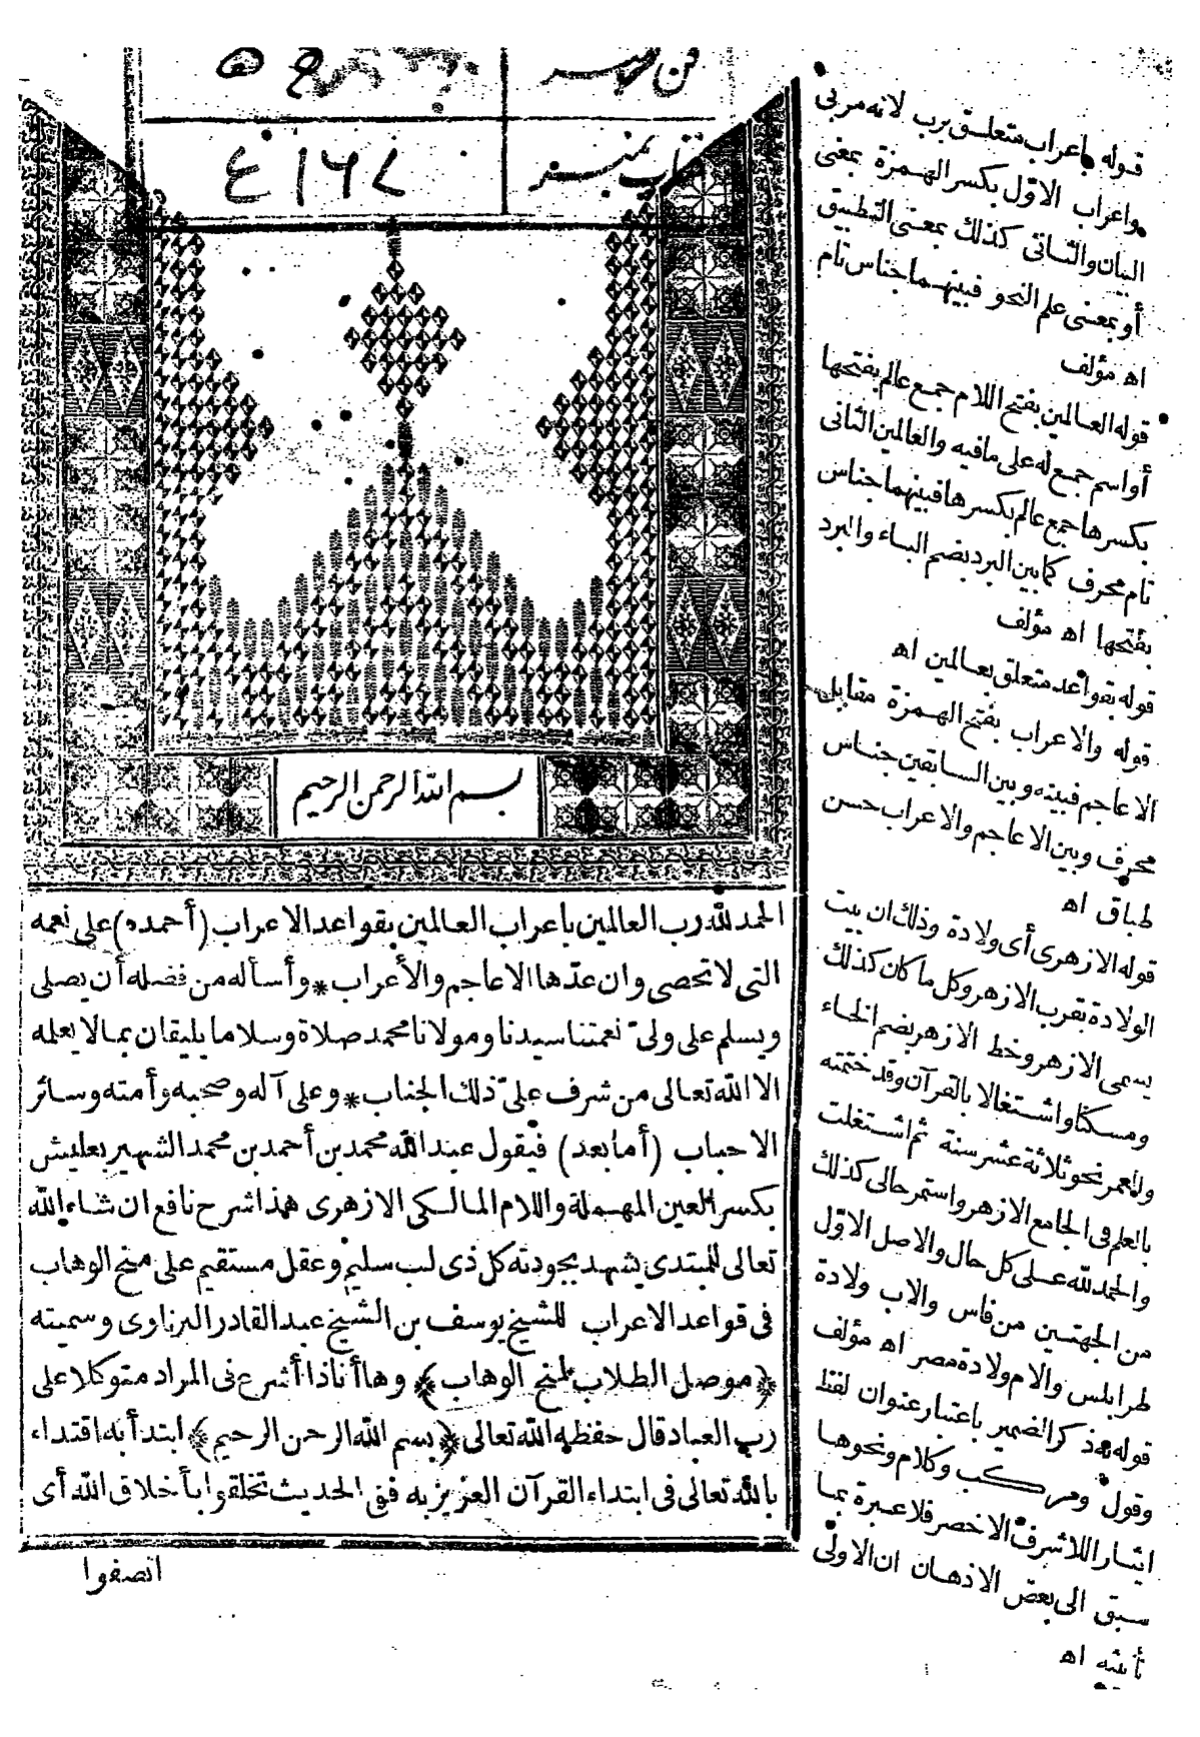 كتاب نمبر
٤١٦٧
بسم الله الرحمن الرحيم
الحمد لله رب العالمين باعراب العالمين بقواعد الاعراب (أحمده) على نعمه
التى لا تحصى وان عدّها الاعاجم والأعراب * وأسأله من فضله أن يصلى
ويسلم على ولىّ نعمتنا سيدنا ومولانا محمد صلاة وسلاما يليقان بما لا يعلمه
الا الله تعالى من شرف علىّ ذلك الجناب * وعلى آله وصحبه وأمته وسائر
الاحباب (أما بعد) فيقول عبد الله محمد بن أحمد بن محمد الشهير بعليش
بكسر العين المهملة واللام المالكى الازهرى هذا شرح نافع ان شاء الله
تعالى للمبتدى يشهد بجودته كل ذى لب سليم وعقل مستقيم على منح الوهاب
فى قواعد الاعراب للشيخ يوسف بن الشيخ عبد القادر البرناوى وسميته
﴿موصل الطلاب لمنح الوهاب﴾ وها أنا ذا أشرع فى المراد متوكلا على
رب العباد قال حفظه الله تعالى ﴿بسم الله الرحمن الرحيم﴾ ابتدأ به اقتداء
بالله تعالى فى ابتداء القرآن العزيز به ففى الحديث تخلقوا بأخلاق الله أى
انصفوا
قوله باعراب متعلق برب لانه مربى
واعراب الاوّل بكسر الهمزة بمعنى
البيان والثانى كذلك بمعنى التطبيق
أو بمعنى علم النحو فبينهما جناس تام
اه مؤلف
قوله العالمين بفتح اللام جمع عالم بفتحها
أو اسم جمع له على ما فيه والعالمين الثانى
بكسرها جمع عالم بكسرها فبينهما جناس
تام محرف كما بين البرد بضم الباء والبرد
بفتحها اه مؤلف
قوله بقواعد متعلق بعالمين اه
قوله والاعراب بفتح الهمزة مقابل
الاعاجم فبينه وبين السابقين جناس
محرف وبين الاعاجم والاعراب حسن
طباق اه
قوله الازهرى أى ولادة وذلك ان بيت
الولادة بقرب الازهر وكل ما كان كذلك
يسمى الازهر وخط الازهر بضم الخاء
ومسكنا واشتغالا بالقرآن وقد ختمته
والعمر نحو ثلاثة عشر سنة ثم اشتغلت
بالعلم فى الجامع الازهر واستمر حالى كذلك
والحمد لله على كل حال والاصل الاوّل
من الجهتين من فاس والاب ولادة
طرابلس والام ولادة مصر اه مؤلف
قوله به ذكر الضمير باعتبار عنوان لفظ
وقول ومركب وكلام ونحوها
ايثار اللاشرف الاخصر فلا عبرة بما
سبق الى بعض الاذهان ان الاولى
تأنيثه اه